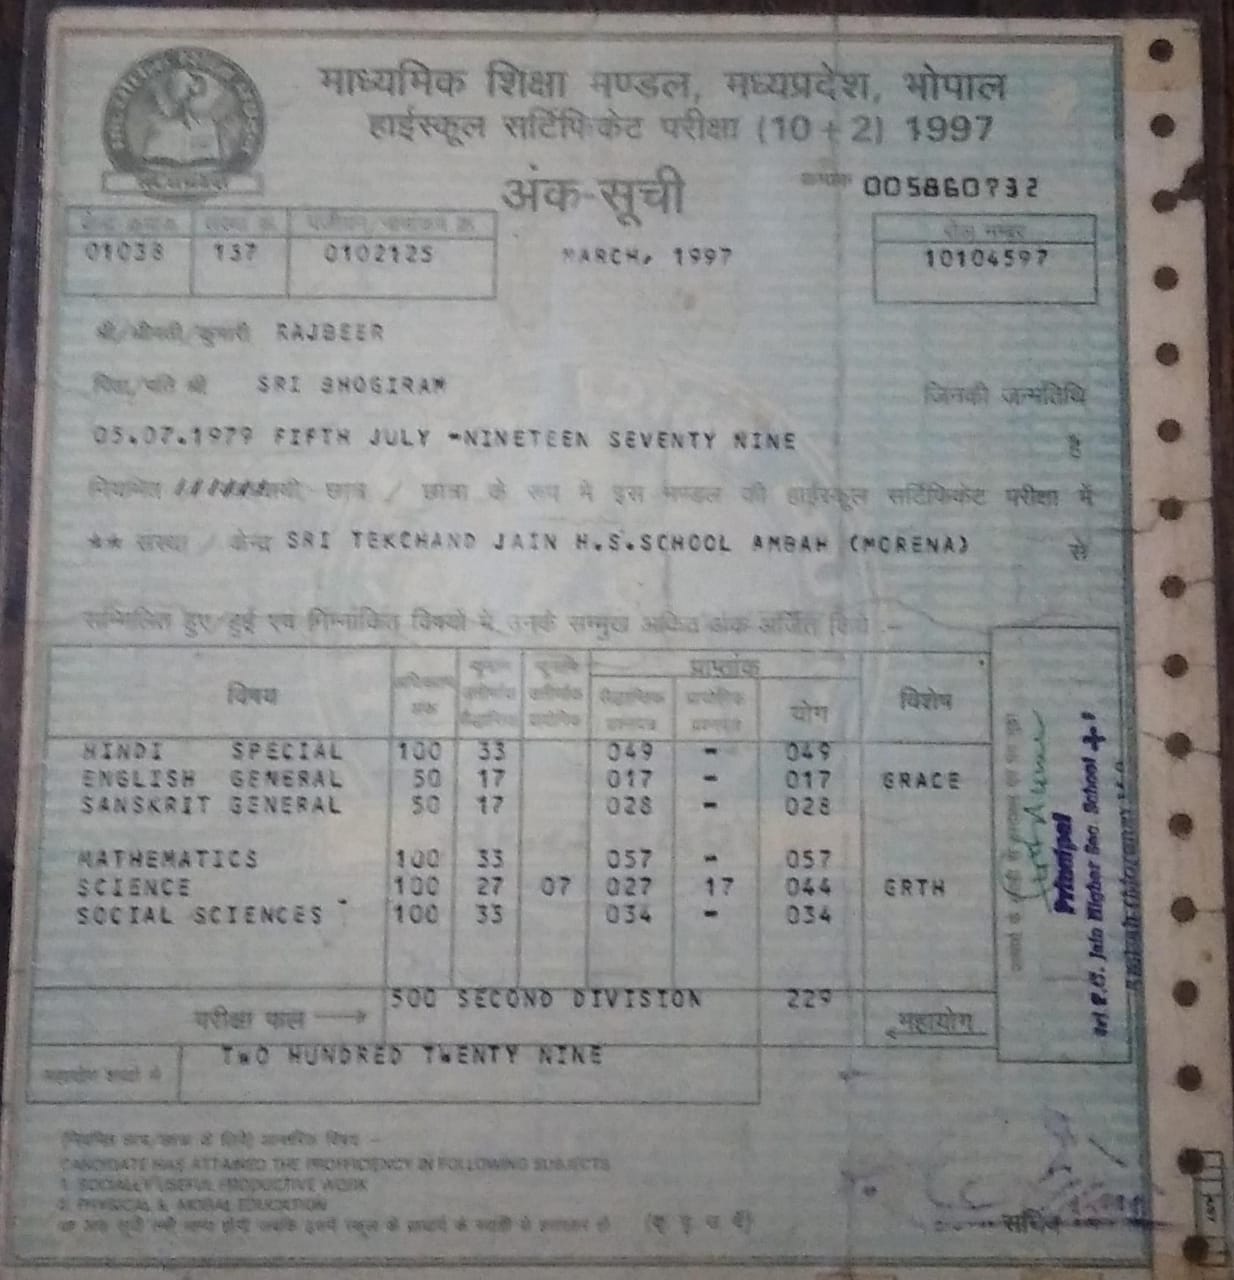 माध्यमिक शिक्षा मण्डल, मध्यप्रदेश, भोपाल
हाईस्कूल सर्टिफिकेट परीक्षा (10 + 2) 1997
अंक-सूची
क्रमांक 005860732
रोल नम्बर
01038 137 0102125 MARCH, 1997 10104597
श्री/श्रीमती/कुमारी RAJBEER
पिता/पति श्री SRI BHOGIRAM जिनकी जन्मतिथि
05.07.1979 FIFTH JULY -NINETEEN SEVENTY NINE है
नियमित छात्र / छात्रा के रूप में इस मण्डल की हाईस्कूल सर्टिफिकेट परीक्षा में
** संस्था / केन्द्र SRI TEKCHAND JAIN H.S.SCHOOL AMBAH (MORENA) से
सम्मिलित हुए/हुई एवं निम्नांकित विषयों में उनके सम्मुख अंकित अंक अर्जित किये :-
प्राप्तांक
विषय अंक योग विशेष
HINDI SPECIAL 100 33 049 - 049
ENGLISH GENERAL 50 17 017 - 017 GRACE
SANSKRIT GENERAL 50 17 028 - 028
MATHEMATICS 100 33 057 - 057
SCIENCE 100 27 07 027 17 044 GRTH
SOCIAL SCIENCES 100 33 034 - 034
परीक्षा फल → 500 SECOND DIVISION 229 महायोग
महायोग शब्दों में TWO HUNDRED TWENTY NINE
Principal
Jain Higher Sec. School
CANDIDATE HAS ATTAINED THE PROFFICIENCY IN FOLLOWING SUBJECTS
1. SOCIALLY USEFUL PRODUCTIVE WORK
2. PHYSICAL & MORAL EDUCATION
सचिव